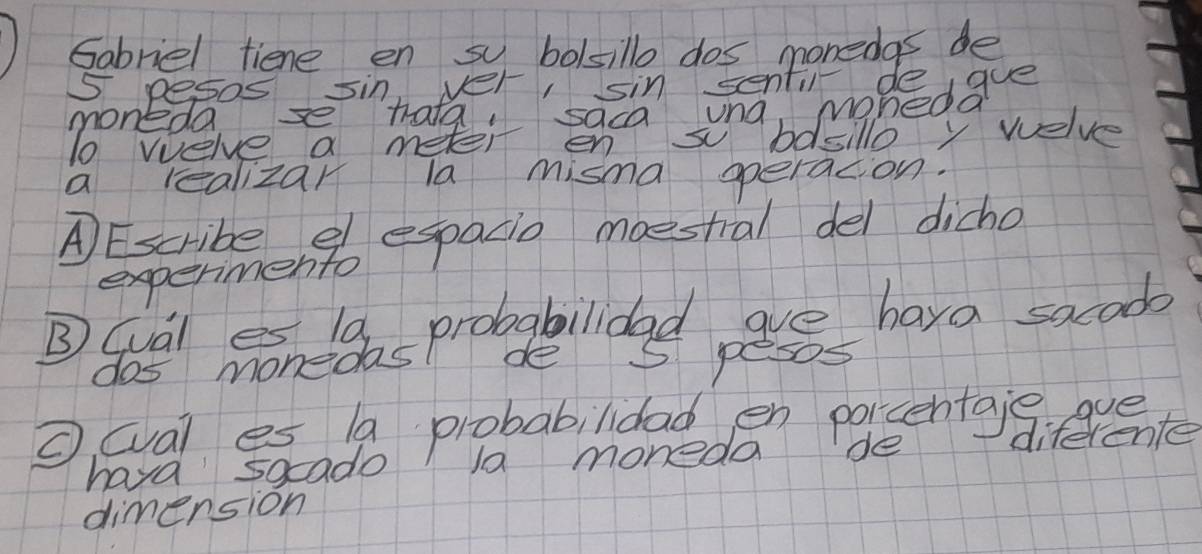 Gabriel tiene en su bolsillo dos monedas de
5 pesos sin ver, sin sentir de que
moneda se trata, saca una moneda
lo vuelve a meter en su bolsillo y vuelve
a realizar la misma operacion.
A) Escribe el espacio moestral del dicho
experimento
B) Cuál es la probabilidad que haya sacado
dos monedas de 5 pesos
C) Cuál es la probabilidad en porcentaje que
haya sacado la moneda de diferente
dimension